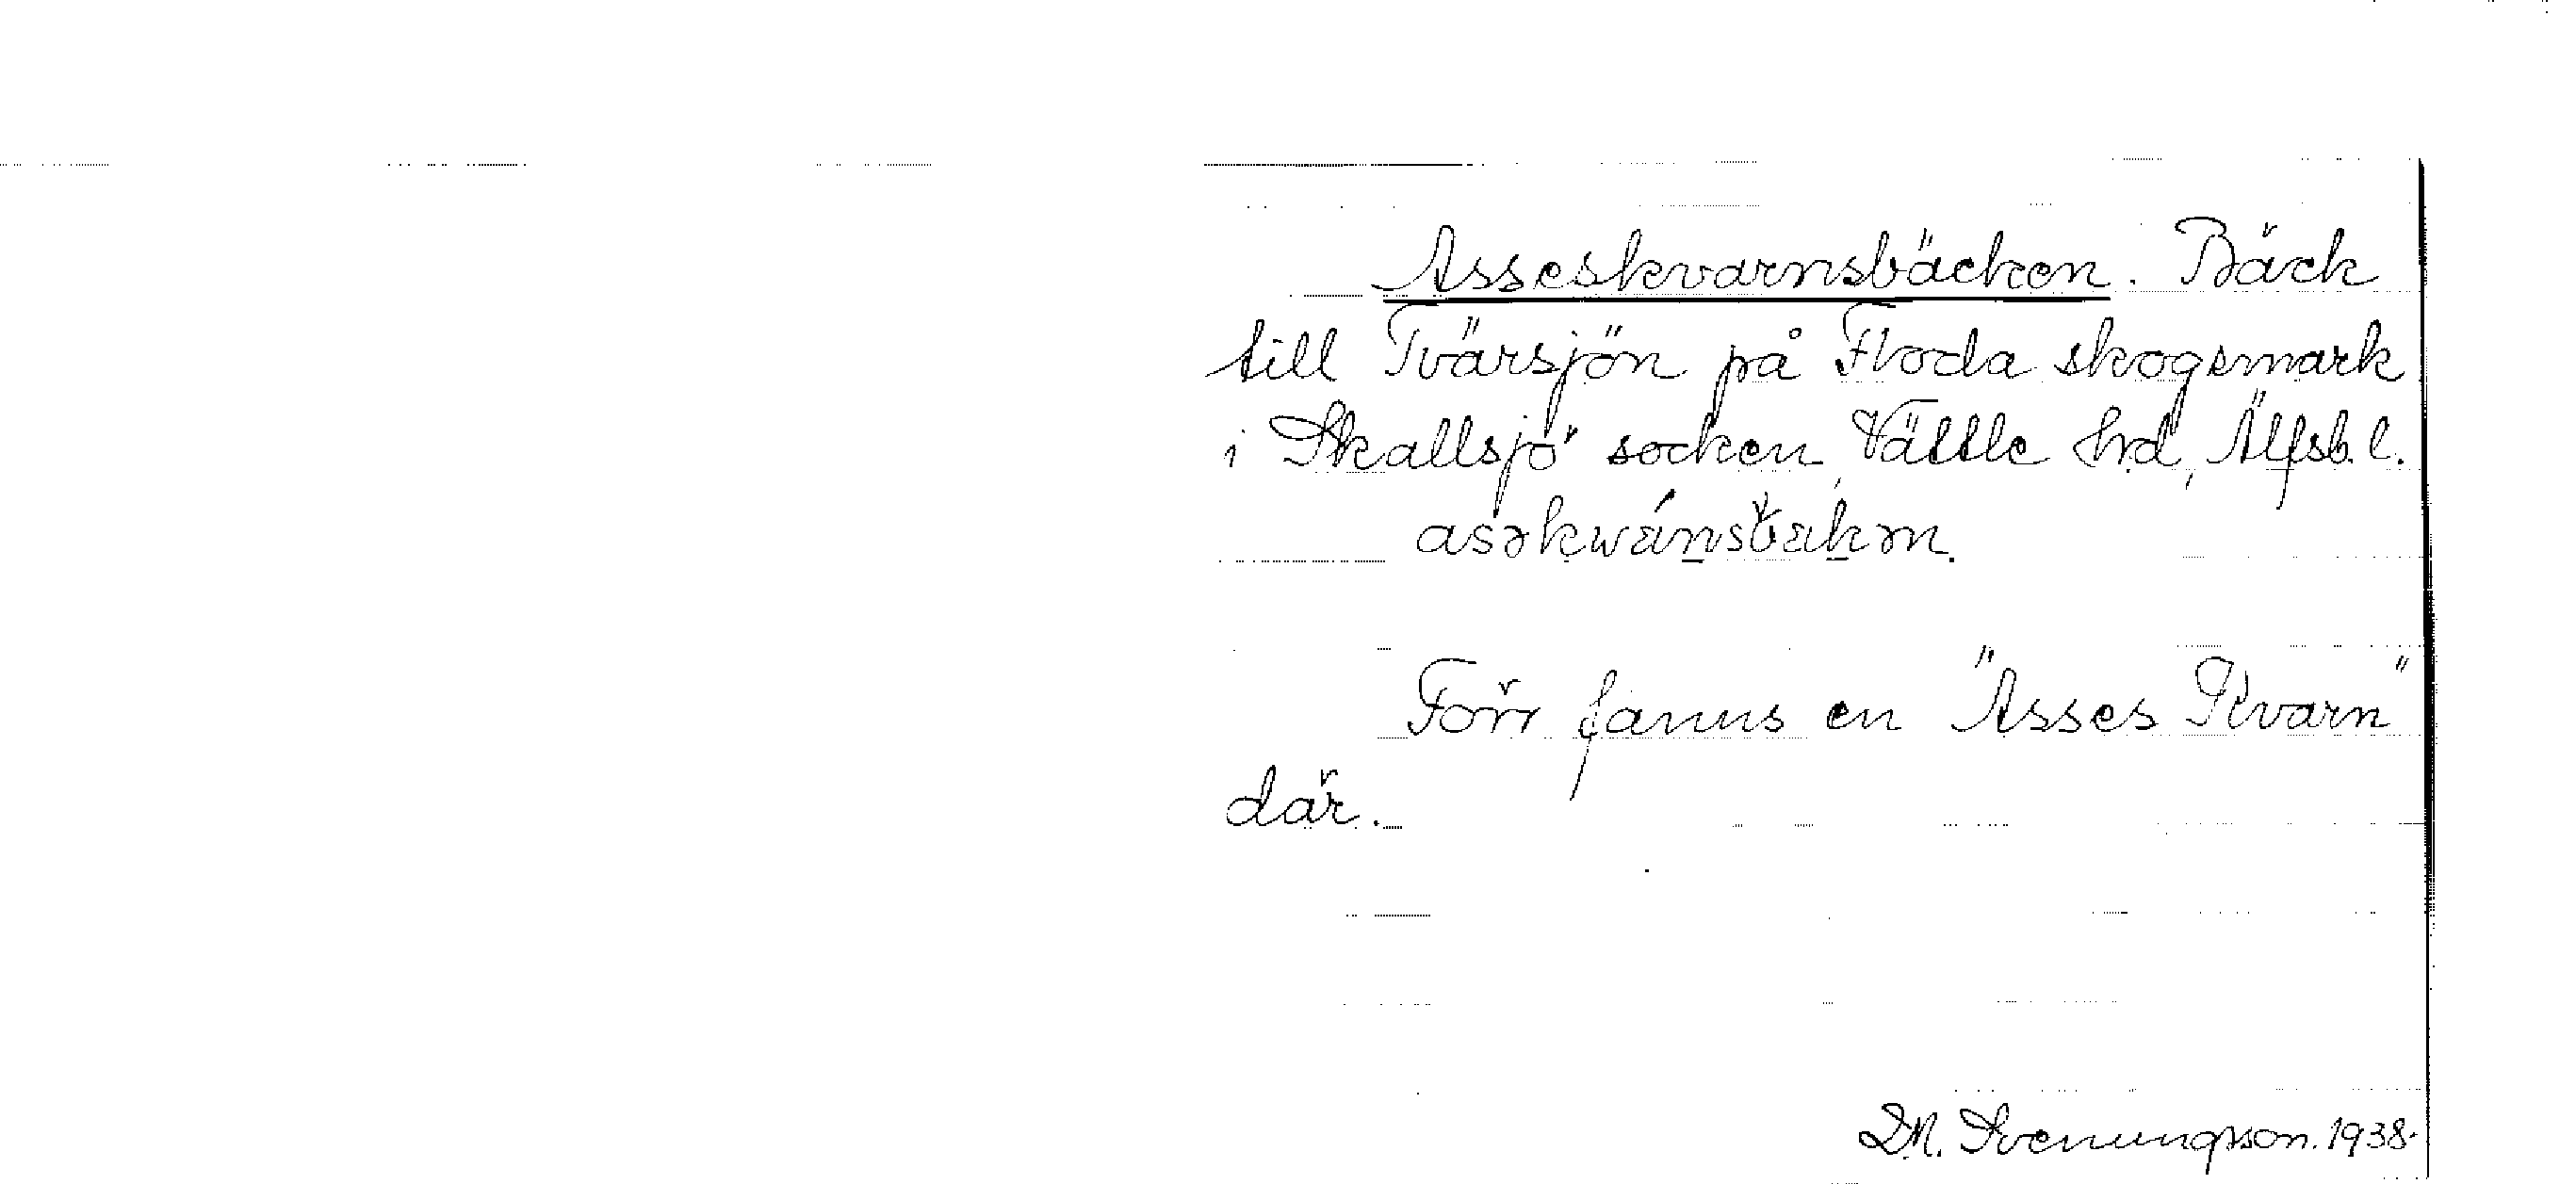 Asseskvarnsbäcken. Bäck
till Tvärsjön på Floda skogsmark
i Skallsjö socken, Vättle hrd, Älfsb. l.
Förr fanns en "Asses Kvarn"
där.
D.N. Svenungsson. 1938.